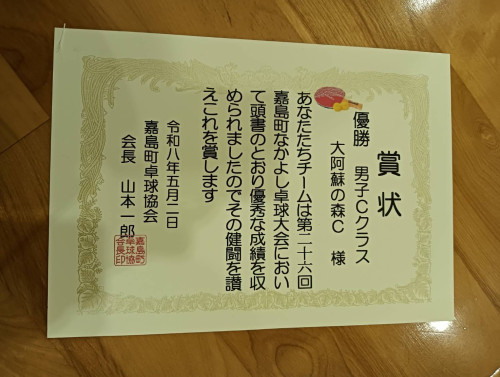 賞状
優勝 男子Cクラス
大阿蘇の森C 様
あなたたちチームは第二十六回
嘉島町なかよし卓球大会におい
て頭書のとおり優秀な成績を収
められましたのでその健闘を讃
えこれを賞します
令和八年五月二日
嘉島町卓球協会
会長 山本一郎
嘉島町
卓球協
会長印